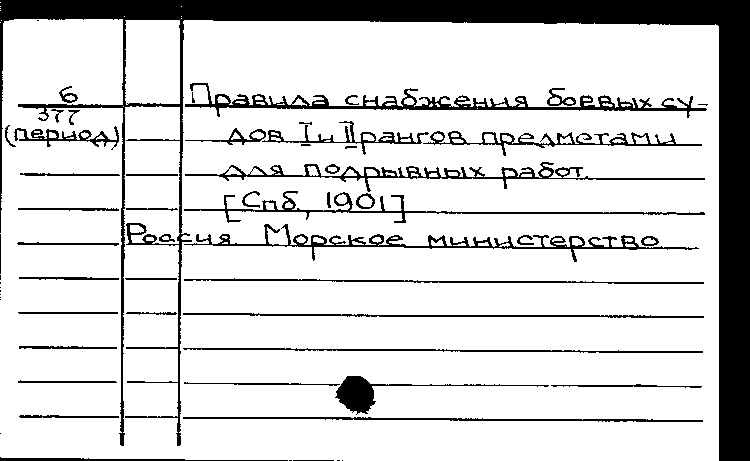 6
377
(период)
Правила снабжения боевых су-
дов I и II рангов предметами
для подрывных работ.
[Спб, 1901]
Россия. Морское министерство